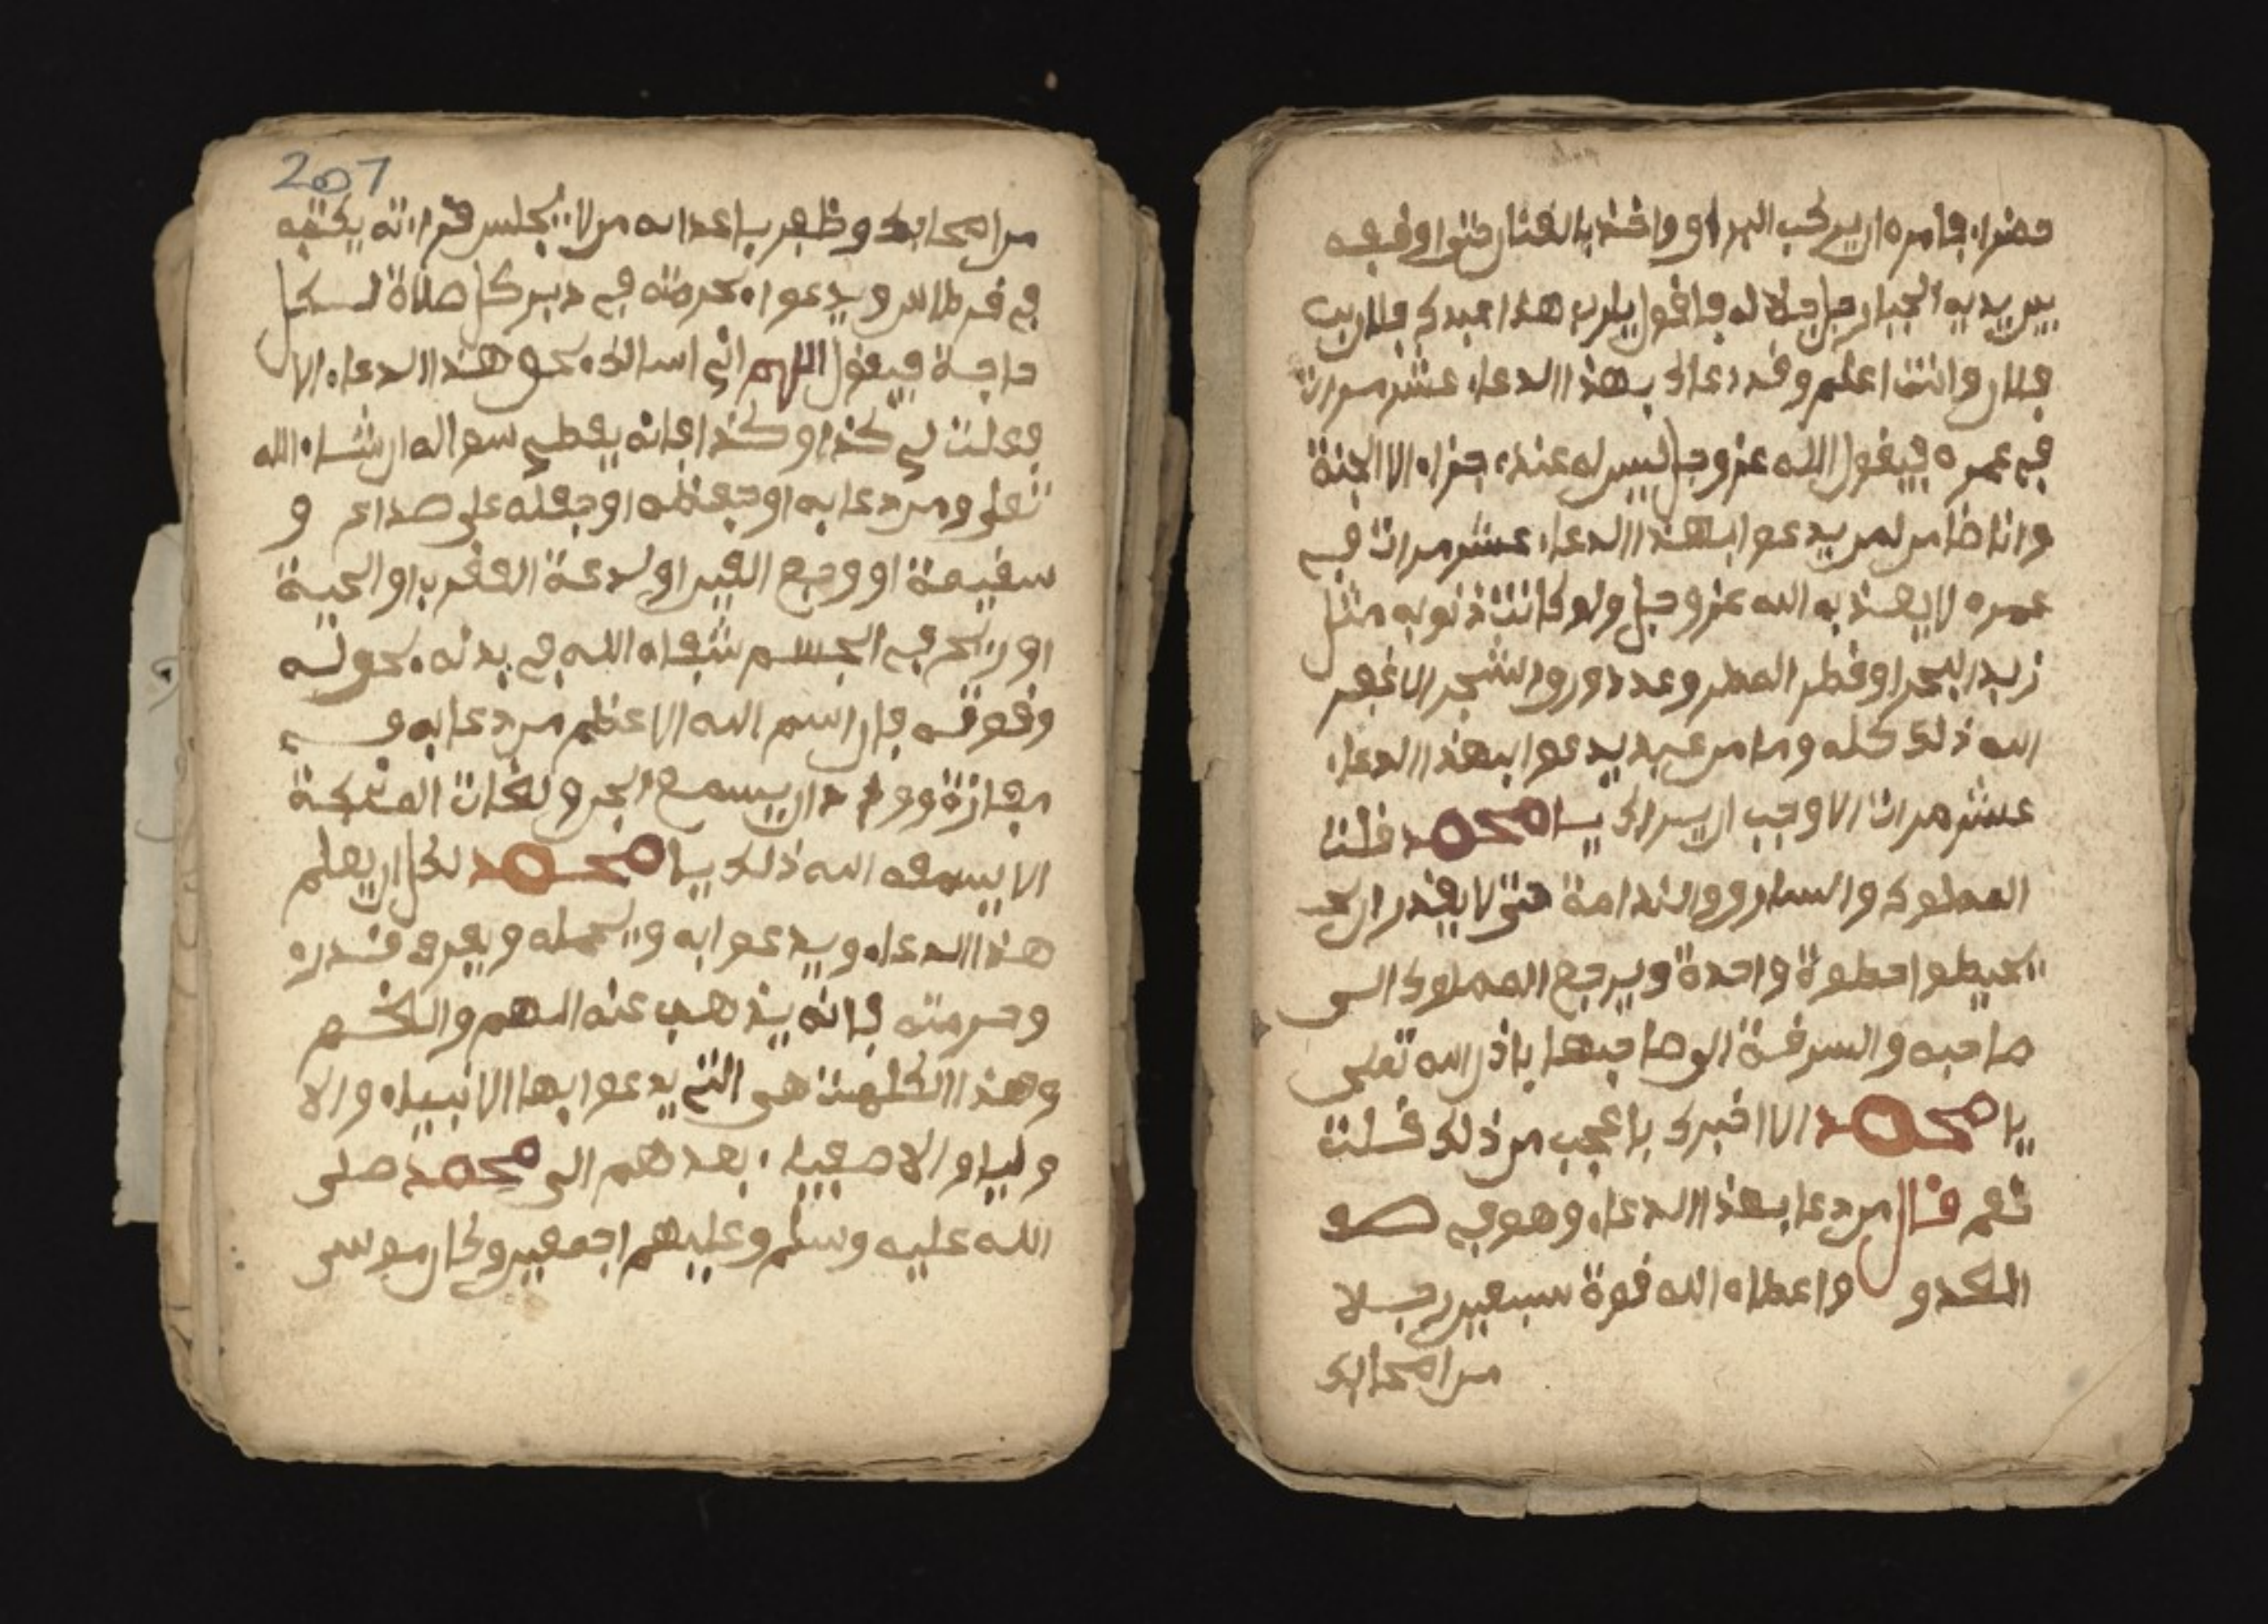 خضراء فامره ان يركب البراو واخذ بالعنان حتى اوفيعه
بين يدي الجبار جل جلاله فاقول يارب هذا عبدك فلان بن
فلان وانت اعلم وقد دعاك بهذا الدعاء عشر مرات
في عمره فيقول الله عز وجل ليس له عندي جزاء الا الجنة
وانا ضامن لمن يدعوا بهذا الدعاء عشر مرات في
عمره لا يعذبه الله عز وجل ولو كانت ذنوبه مثل
زبد البحر او قطر المطر وعدد ورق الشجر الا غفر
الله ذلك كله وما من عبد يدعوا بهذا الدعاء
عشر مرات الا وجب يا محمد قلت
المملوك والسارق والندامة حتى لا يقدر ان يخـ
يخيطوا خطوة واحدة ويرجع المملوك الى
صاحبه والسرقة الى صاحبها باذن الله تعلى
يا محمد الا اخبرك باعجب من ذلك قلت
نعم قال من دعا بهذا الدعاء وهو في صف
العدو واعطاه الله قوة سبعين رجلا
من اصحابك
207
من اصحابك وظفر باعدائه من لا يجلس قراءته يكتبه
في قرطاس ويدعوا بحرمته في دبر كل صلاة لكل
حاجة فيقول اللهم اني اسالك بحق هذا الدعاء الا
فعلت لي كذا وكذا فانه يعطي سواله ان شاء الله
تعلى ومن دعا به او حفظه او جعله على صداع و
سقيمة او وجع العين او لدغة العقرب او الحية
او ريح في الجسم شفاه الله في بدنه بحوله
وقوته فان اسم الله الاعظم من دعا به في
مفازة ان يسمع الجن ونغمات الملئكة
الا يسمعه الله ذلك يا محمد لكل ان يعلم
هذا الدعاء ويدعوا به ويحمله ويعرف قدره
وحرمته فانه يذهب عنه الهم والغم
وهذا الكلمت هي التي يدعوا بها الانبياء والا
ولياء والاصفياء بعدهم الى محمد صلى
الله عليه وسلم وعليهم اجمعين وكان موسى